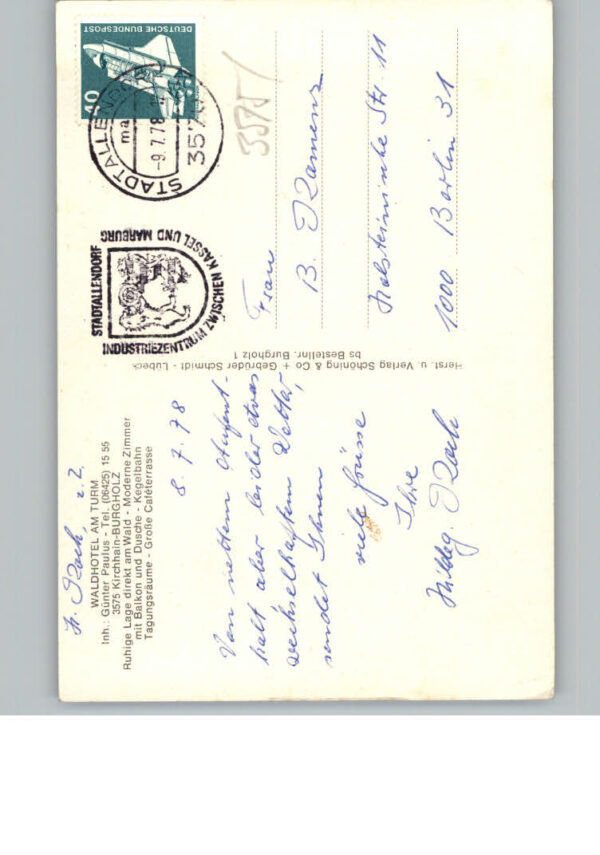 H. Koch, z. Z.
WALDHOTEL AM TURM
Inh.: Günter Paulus - Tel. (06425) 15 55
3575 Kirchhain-BURGHOLZ
Ruhige Lage direkt am Wald - Moderne Zimmer
mit Balkon und Dusche - Kegelbahn
Tagungsräume - Große Caféterrasse
8. 7. 78
Von nettem Aufent-
halt aber leider etwas
wechselhaftem Wetter,
sendet Ihnen
viele Grüsse
Ihre
Hildeg. Koch
Herst. u. Verlag Schöning & Co + Gebrüder Schmidt - Lübeck
bs Bestellnr. Burgholz 1
STADTALLENDORF
INDUSTRIEZENTRUM ZWISCHEN KASSEL UND MARBURG
STADTALLENDORF
-9.7.78
357
DEUTSCHE BUNDESPOST
40
3575/
Frau
B. Kamenz
Holsteinische Str. 11
1000 Berlin 31